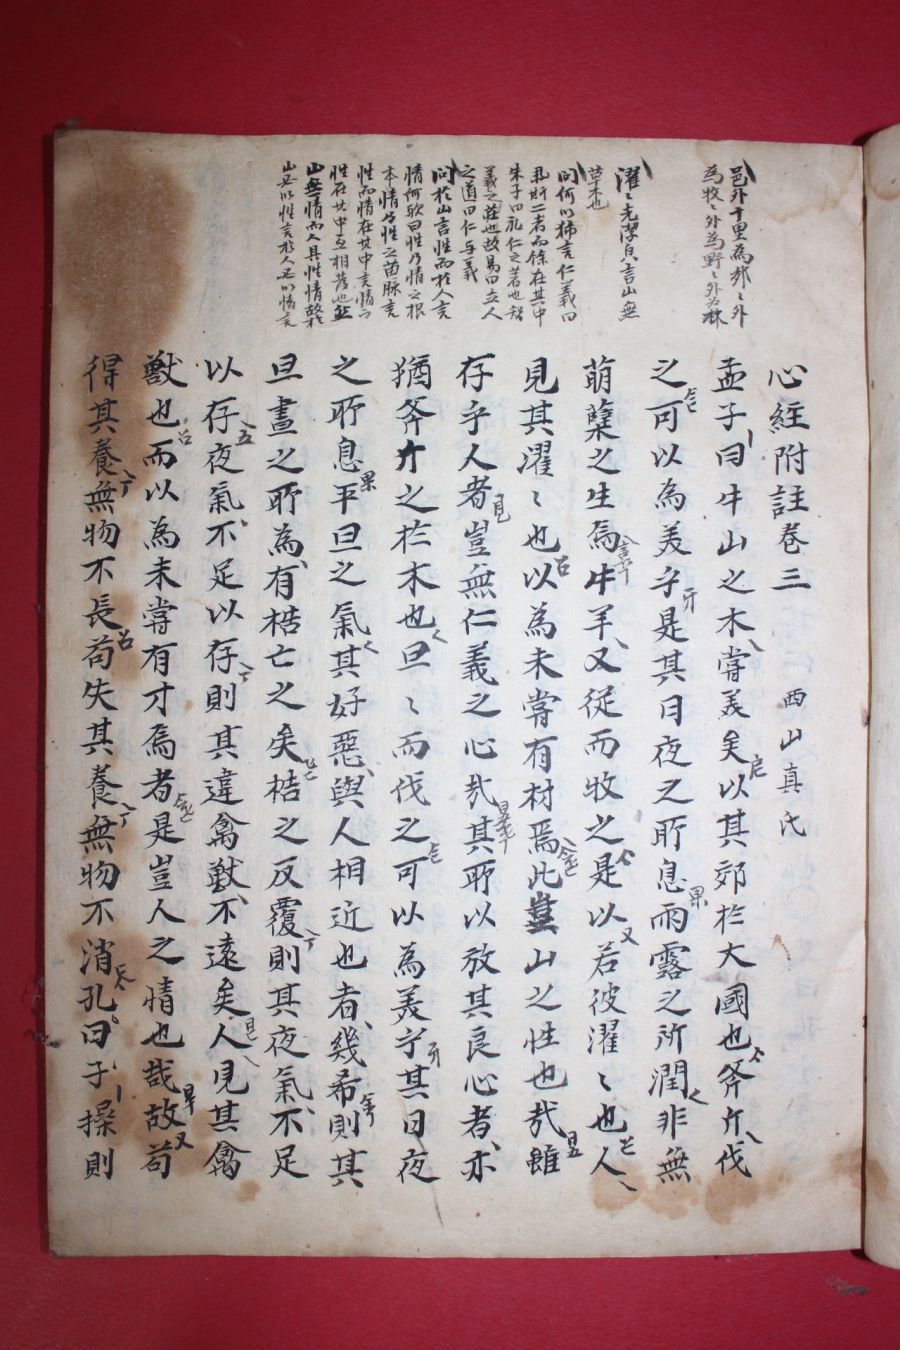 邑外十里為郊〻外
為牧〻外為野〻外為林
濯〻光潔皃言山無
草木也
問何以獨言仁義曰
朱子曰礼仁之著也智
義之莊也故易曰立人
之道曰仁与義
問於山言性而於人言
情何欤曰性乃情之根
本情乃性之苗脉言
性而情在其中言情而
性在其中互相發也且
山無情而人具性情故於
山只以性言於人只以情言
心經附註卷三 西山真氏
孟子曰牛山之木嘗美矣以其郊於大國也斧斤伐
之可以為美乎是其日夜之所息雨露之所潤非無
萌蘖之生焉牛羊又從而牧之是以若彼濯〻也人
見其濯〻也以為未嘗有材焉此豈山之性也哉雖
存乎人者豈無仁義之心哉其所以放其良心者亦
猶斧斤之於木也旦〻而伐之可以為美乎其日夜
之所息平旦之氣其好惡與人相近也者幾希則其
旦晝之所為有梏亡之矣梏之反覆則其夜氣不足
以存夜氣不足以存則其違禽獸不遠矣人見其禽
獸也而以為未嘗有才焉者是豈人之情也哉故苟
得其養無物不長苟失其養無物不消孔子曰操則